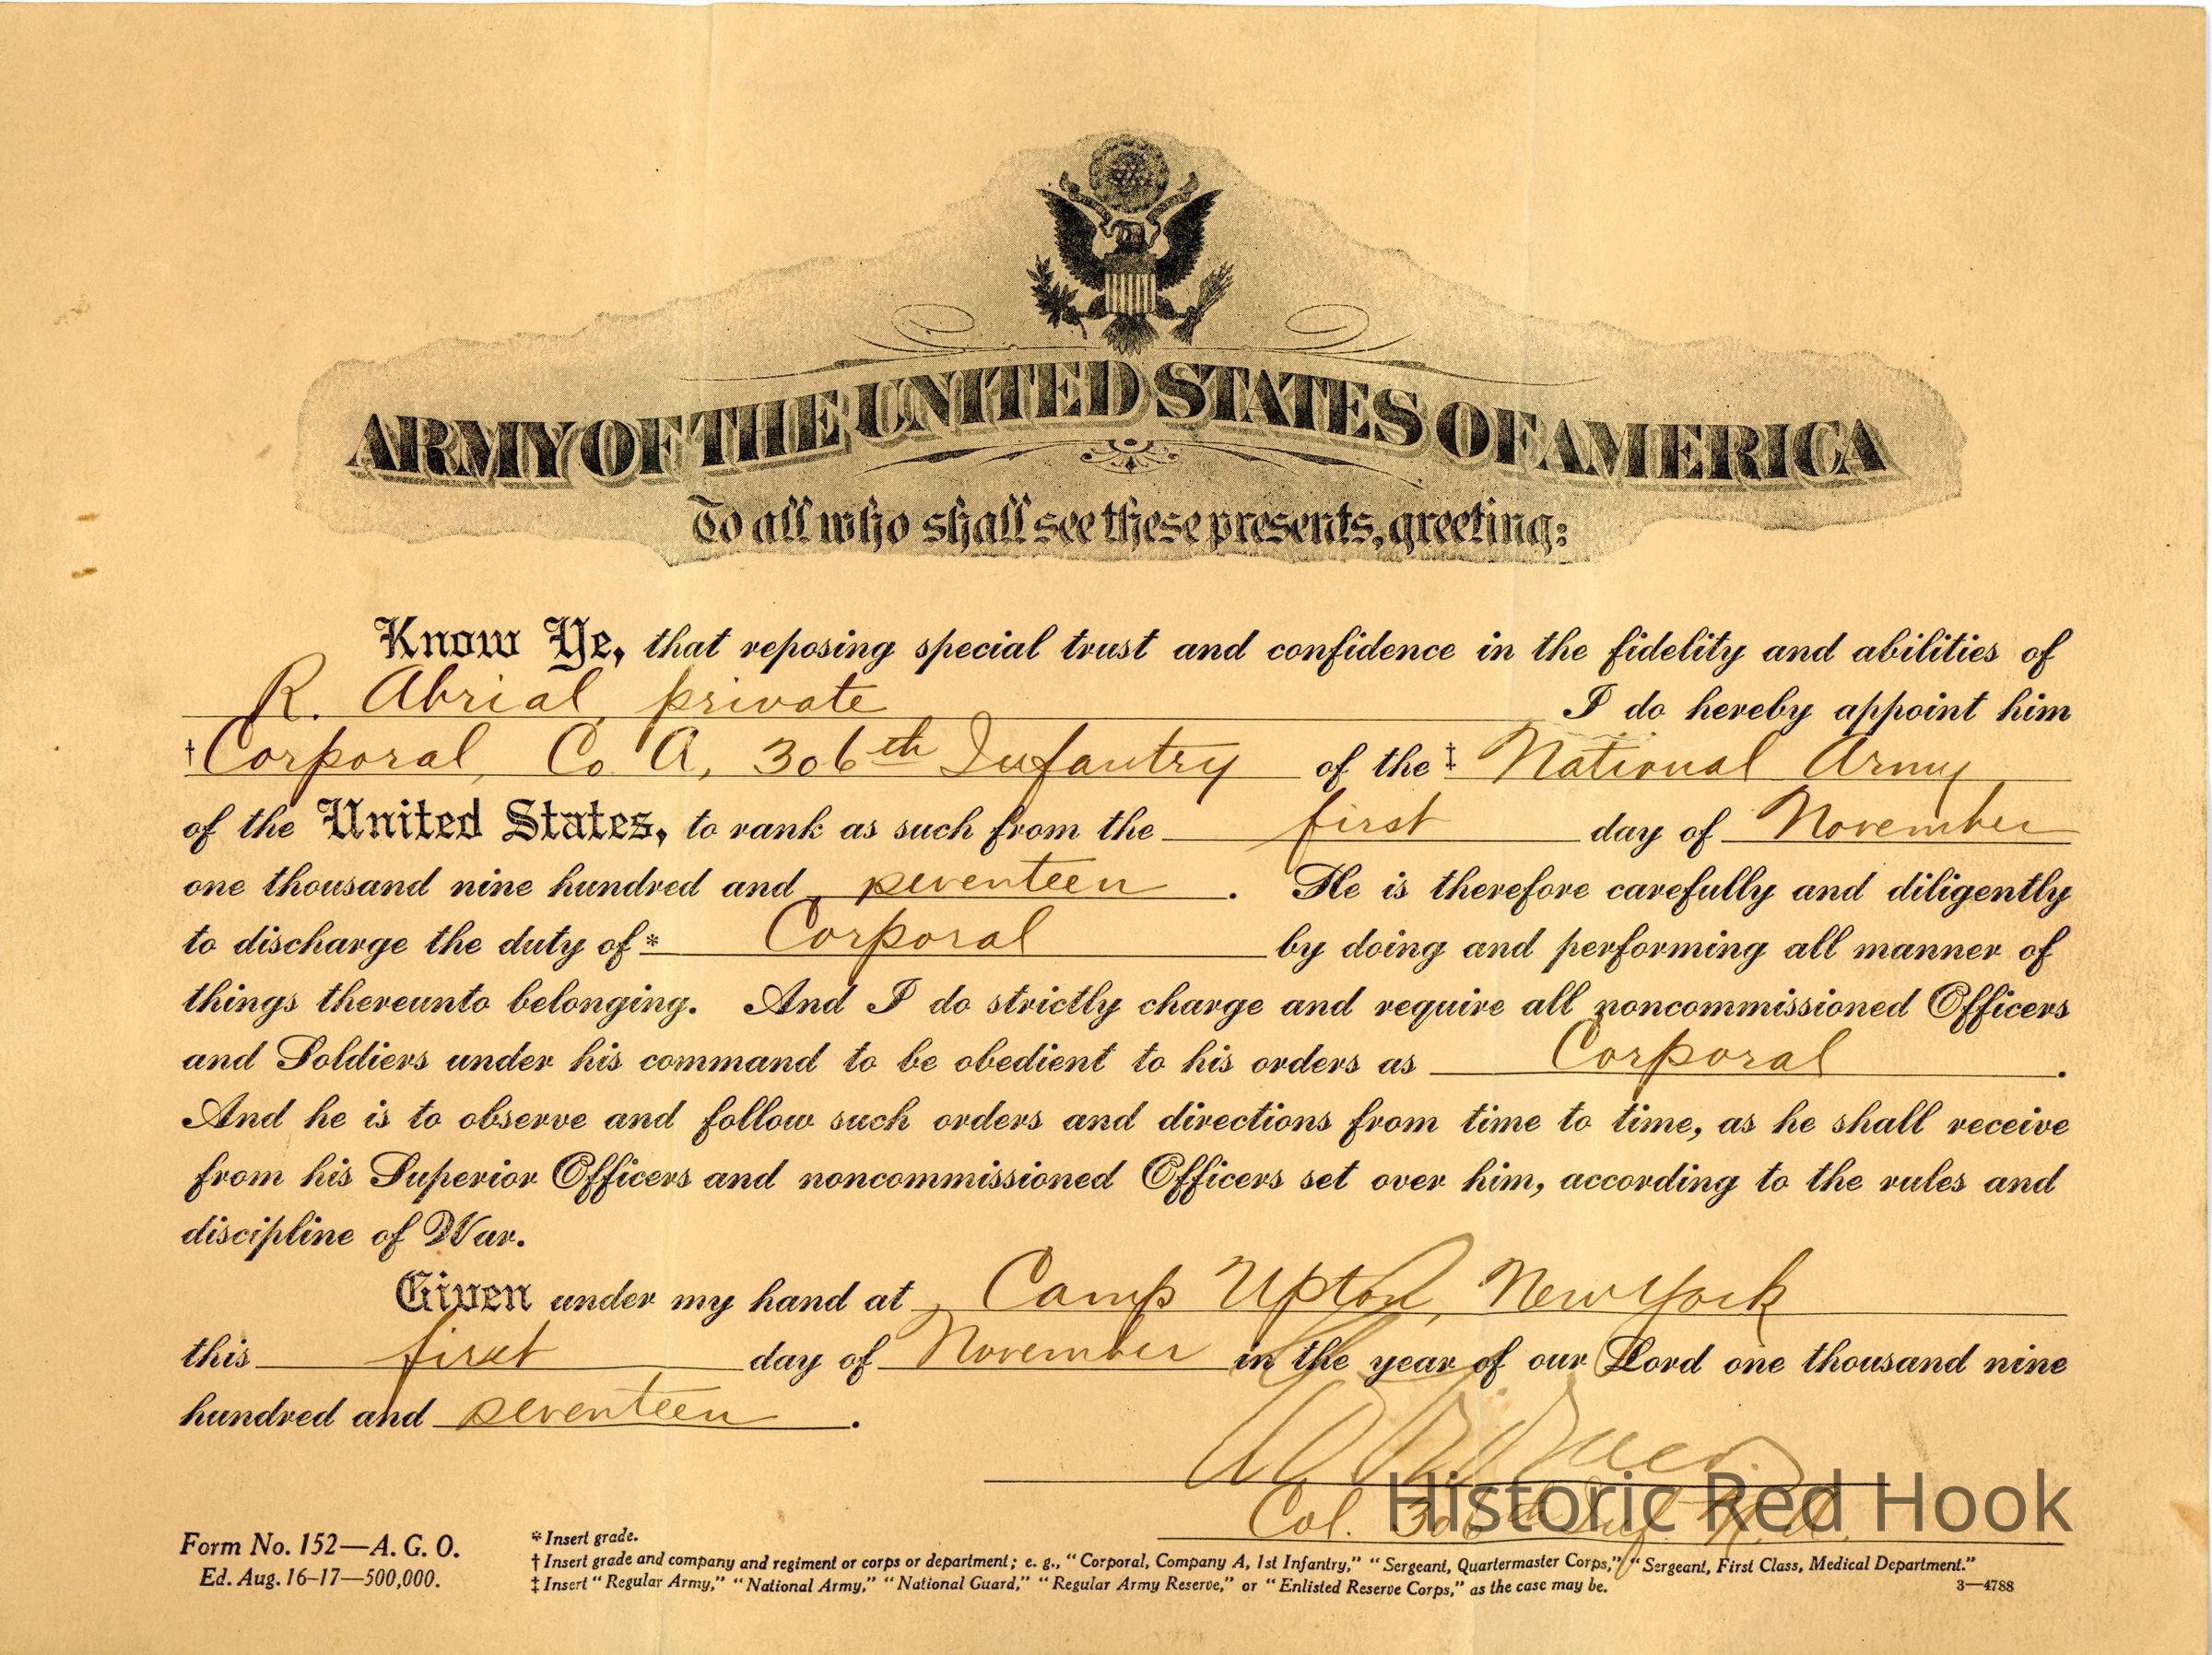 ARMY OF THE UNITED STATES OF AMERICA
To all who shall see these presents, greeting:
Know Ye, that reposing special trust and confidence in the fidelity and abilities of
R. Abrial, private I do hereby appoint him
† Corporal, Co. A, 306th Infantry of the ‡ National Army
of the United States, to rank as such from the first day of November
one thousand nine hundred and seventeen. He is therefore carefully and diligently
to discharge the duty of * Corporal by doing and performing all manner of
things thereunto belonging. And I do strictly charge and require all noncommissioned Officers
and Soldiers under his command to be obedient to his orders as Corporal.
And he is to observe and follow such orders and directions from time to time, as he shall receive
from his Superior Officers and noncommissioned Officers set over him, according to the rules and
discipline of War.
Given under my hand at Camp Upton, New York
this first day of November in the year of our Lord one thousand nine
hundred and seventeen.
Col. 306th Inf. N.A.
Historic Red Hook
Form No. 152—A. G. O.
Ed. Aug. 16-17—500,000.
* Insert grade.
† Insert grade and company and regiment or corps or department; e. g., "Corporal, Company A, 1st Infantry," "Sergeant, Quartermaster Corps," "Sergeant, First Class, Medical Department."
‡ Insert "Regular Army," "National Army," "National Guard," "Regular Army Reserve," or "Enlisted Reserve Corps," as the case may be.
3—4788